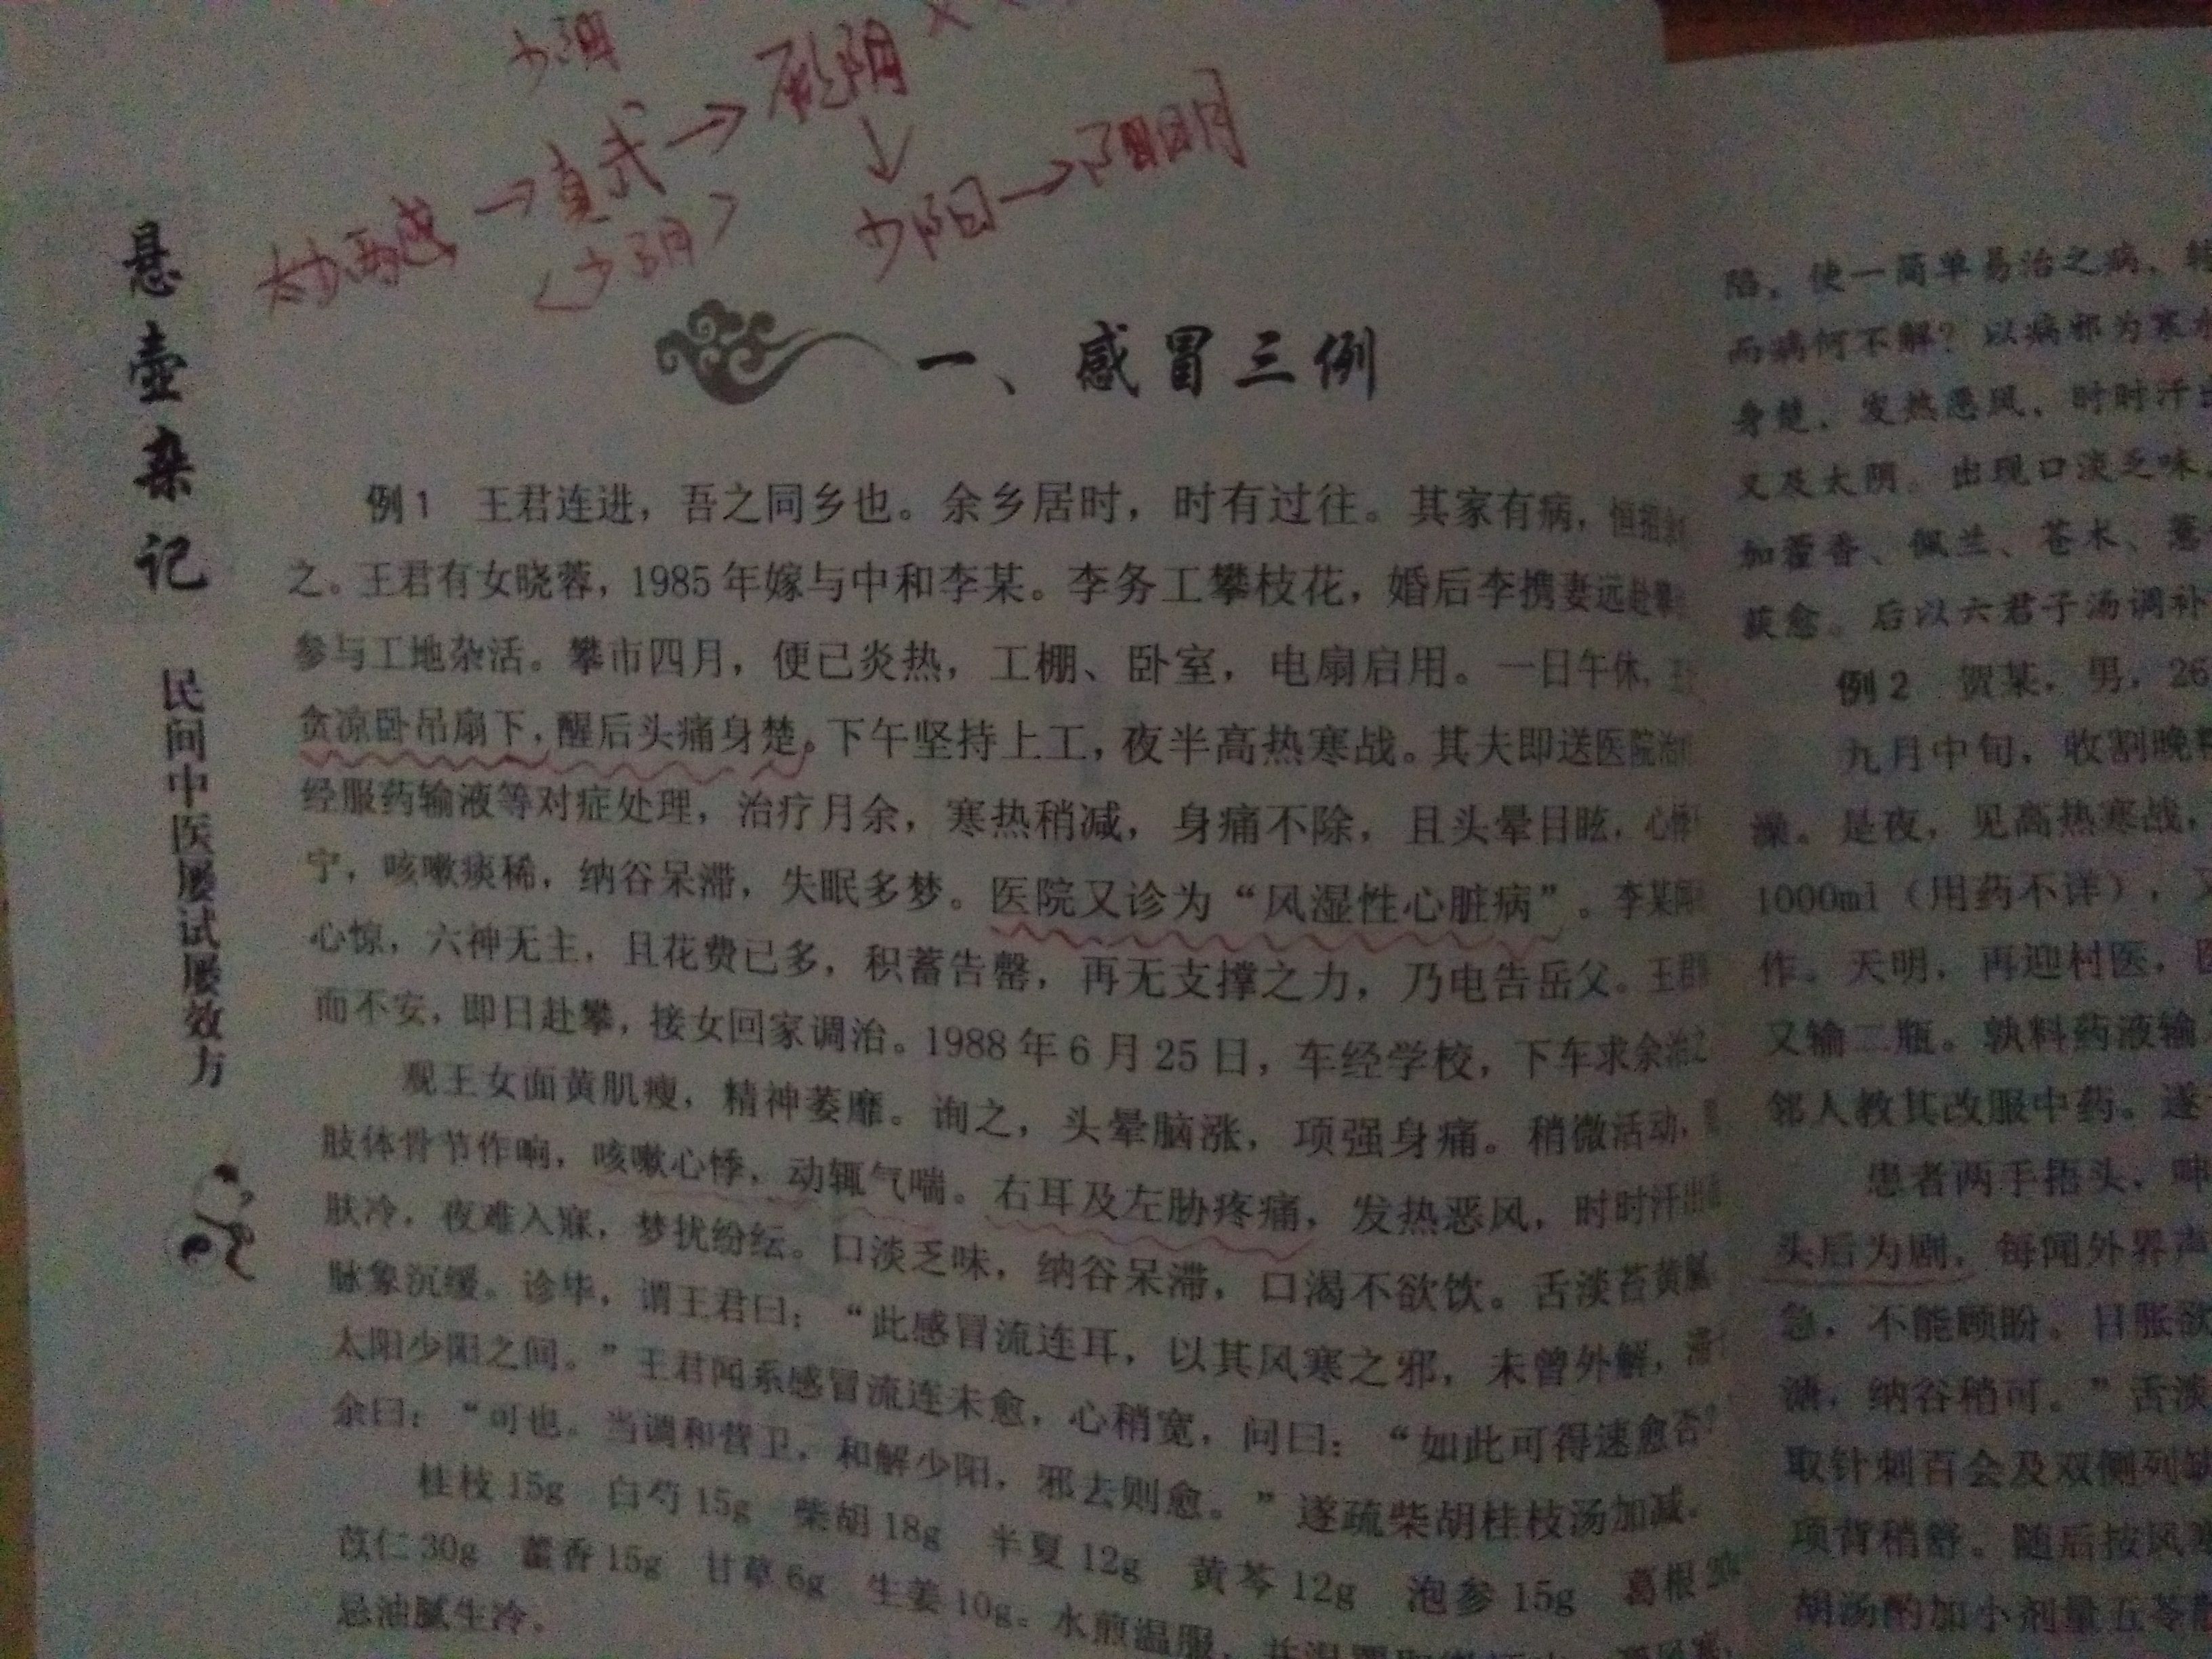 少阴
真武→厥阴
<少阴>
↓
少阳→阳明
悬壶杂记
民间中医屡试屡效方
一、感冒三例
例1 王君连进，吾之同乡也。余乡居时，时有过往。其家有病，恒招
之。王君有女晓蓉，1985年嫁与中和李某。李务工攀枝花，婚后李携妻远赴
参与工地杂活。攀市四月，便已炎热，工棚、卧室，电扇启用。一日午休，
贪凉卧吊扇下，醒后头痛身楚。下午坚持上工，夜半高热寒战。其夫即送医院治
经服药输液等对症处理，治疗月余，寒热稍减，身痛不除，且头晕目眩，心悸
宁，咳嗽痰稀，纳谷呆滞，失眠多梦。医院又诊为“风湿性心脏病”。李某
心惊，六神无主，且花费已多，积蓄告罄，再无支撑之力，乃电告岳父。王君
而不安，即日赴攀，接女回家调治。1988年6月25日，车经学校，下车求余治之
观王女面黄肌瘦，精神萎靡。询之，头晕脑涨，项强身痛。稍微活动，
肢体骨节作响，咳嗽心悸，动辄气喘。右耳及左胁疼痛，发热恶风，时时汗出
肤冷，夜难入寐，梦扰纷纭。口淡乏味，纳谷呆滞，口渴不欲饮。舌淡苔黄腻
脉象沉缓。诊毕，谓王君曰：“此感冒流连耳，以其风寒之邪，未曾外解，
太阳少阳之间。”王君闻系感冒流连未愈，心稍宽，问曰：“如此可得速愈否？
余曰：“可也。当调和营卫，和解少阳，邪去则愈。”遂疏柴胡桂枝汤加减。
桂枝15g 白芍15g 柴胡18g 半夏12g 黄芩12g 泡参15g 葛根
苡仁30g 藿香15g 甘草6g 生姜10g。水煎温服，
忌油腻生冷。
陷。使一简单易治之病，
而病何不解？以病邪为寒
身楚、发热恶风，时时汗
又及太阴。出现口淡乏味
加藿香、佩兰、苍术、
获愈。后以六君子汤调补
例2 贺某，男，26
九月中旬，收割晚
澡。是夜，见高热寒战，
1000ml（用药不详），
作。天明，再迎村医，
又输二瓶。孰料药液输
邻人教其改服中药。遂
患者两手捂头，呻
头后为剧，每闻外界声
急，不能顾盼。目胀欲
溏，纳谷稍可。”舌淡
取针刺百会及双侧列缺
项背稍舒。随后按风寒
胡汤酌加小剂量五苓